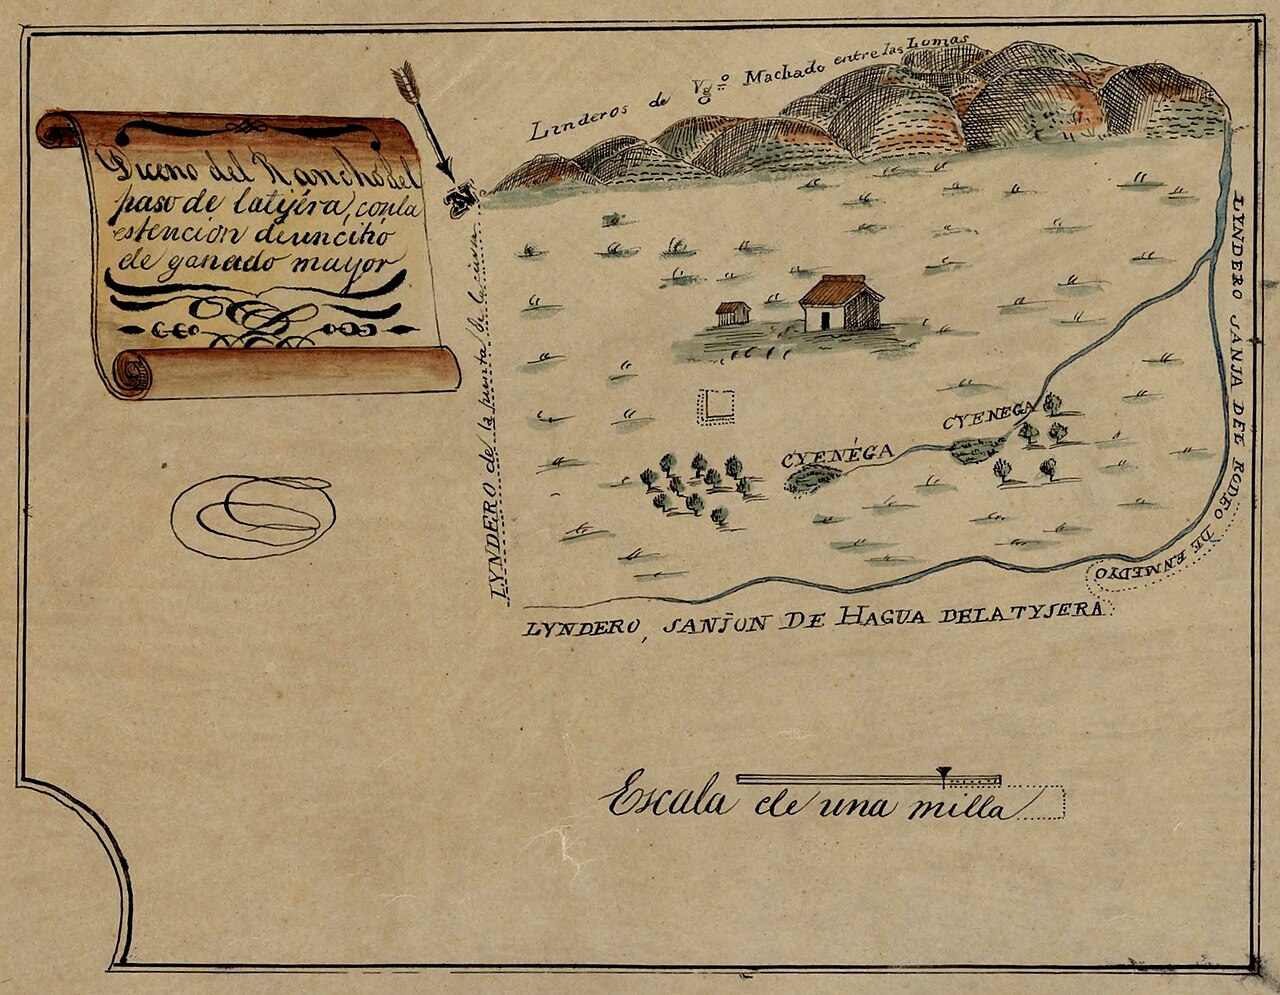 Diceno del Rancho del
paso de latyéra, conla
estencion deuncitio
de ganado mayor
N
Linderos de Vg.º Machado entre las Lomas
LYNDERO de la punta de la
LYNDERO SANJA DEL RODEO DE ENMEDYO
CYENEGA
CYENÉGA
LYNDERO, SANJON DE HAGUA DELATYSERA
Escala de una milla